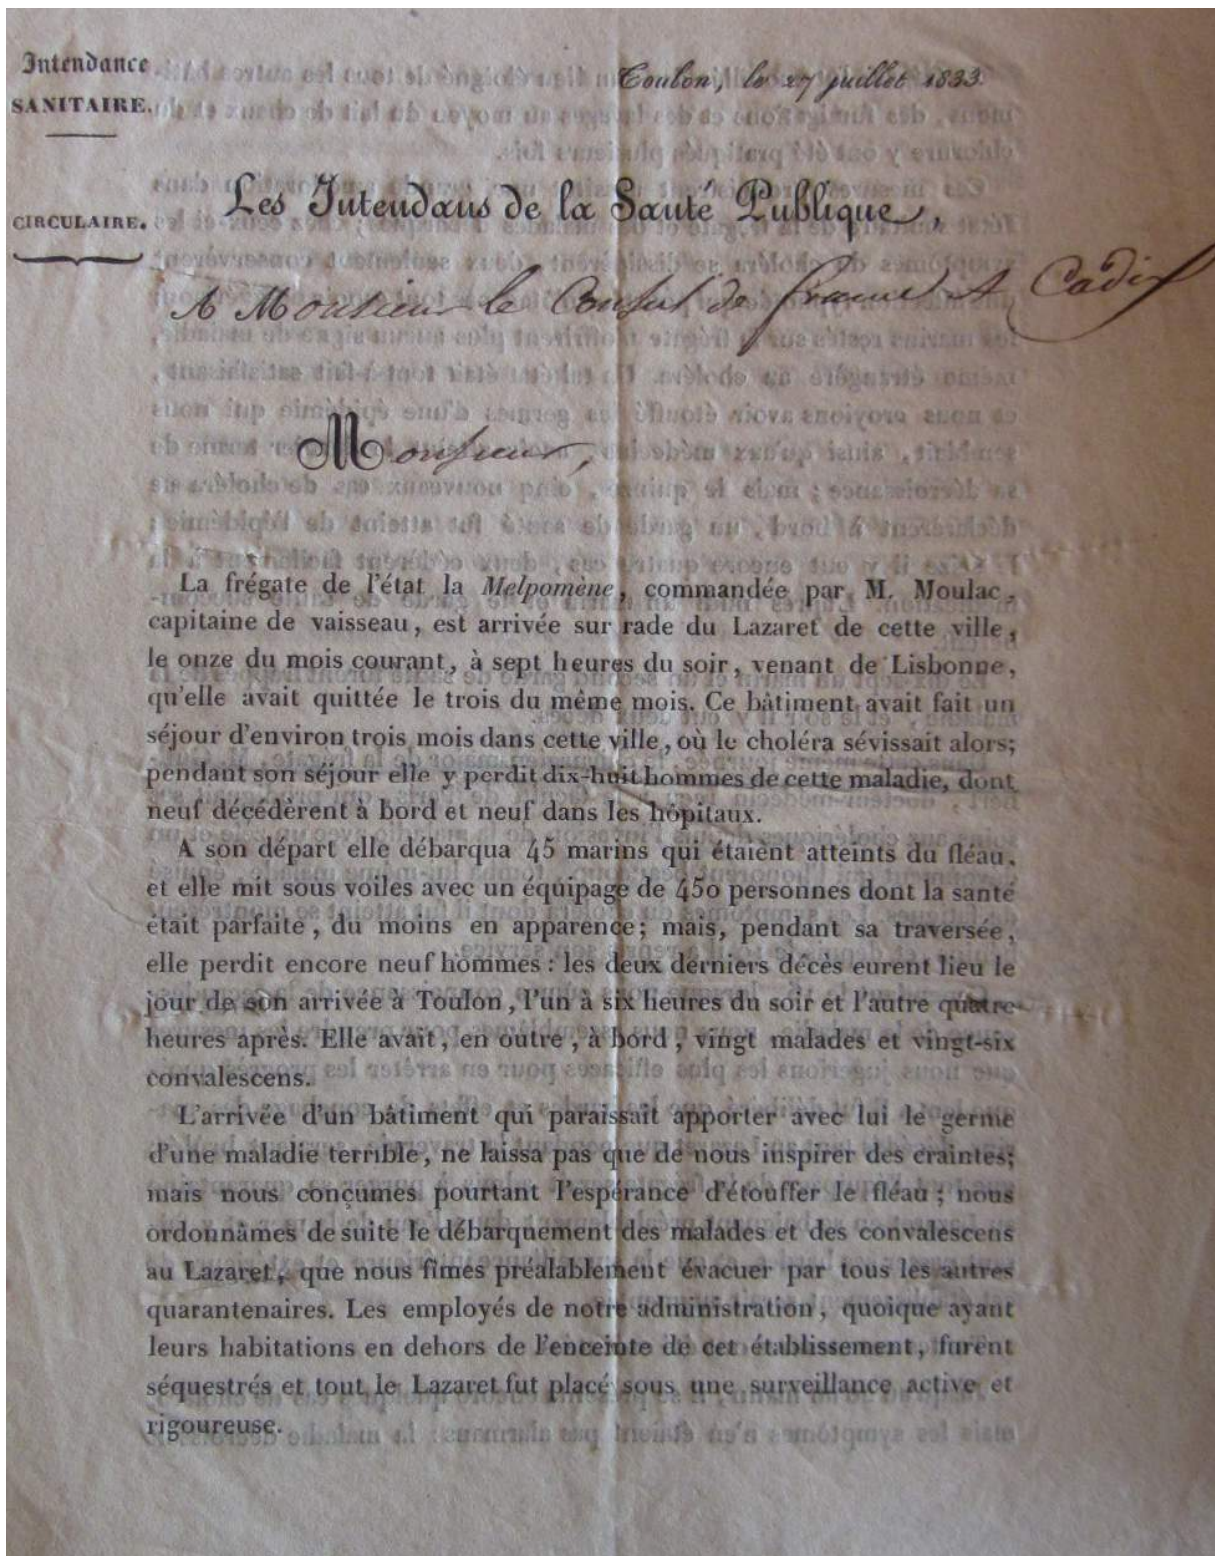 Intendance
SANITAIRE.
Toulon, le 27 juillet 1833.
CIRCULAIRE.
Les Intendans de la Santé Publique,
A Monsieur le Consul de france A Cadix
Monsieur,
La frégate de l'état la Melpomène, commandée par M. Moulac,
capitaine de vaisseau, est arrivée sur rade du Lazaret de cette ville,
le onze du mois courant, à sept heures du soir, venant de Lisbonne,
qu'elle avait quittée le trois du même mois. Ce bâtiment avait fait un
séjour d'environ trois mois dans cette ville, où le choléra sévissait alors;
pendant son séjour elle y perdit dix-huit hommes de cette maladie, dont
neuf décédèrent à bord et neuf dans les hôpitaux.
A son départ elle débarqua 45 marins qui étaient atteints du fléau,
et elle mit sous voiles avec un équipage de 450 personnes dont la santé
était parfaite, du moins en apparence; mais, pendant sa traversée,
elle perdit encore neuf hommes : les deux derniers décès eurent lieu le
jour de son arrivée à Toulon, l'un à six heures du soir et l'autre quatre
heures après. Elle avait, en outre, à bord, vingt malades et vingt-six
convalescens.
L'arrivée d'un bâtiment qui paraissait apporter avec lui le germe
d'une maladie terrible, ne laissa pas que de nous inspirer des craintes;
mais nous conçumes pourtant l'espérance d'étouffer le fléau; nous
ordonnâmes de suite le débarquement des malades et des convalescens
au Lazaret, que nous fîmes préalablement évacuer par tous les autres
quarantenaires. Les employés de notre administration, quoique ayant
leurs habitations en dehors de l'enceinte de cet établissement, furent
séquestrés et tout le Lazaret fut placé sous une surveillance active et
rigoureuse.